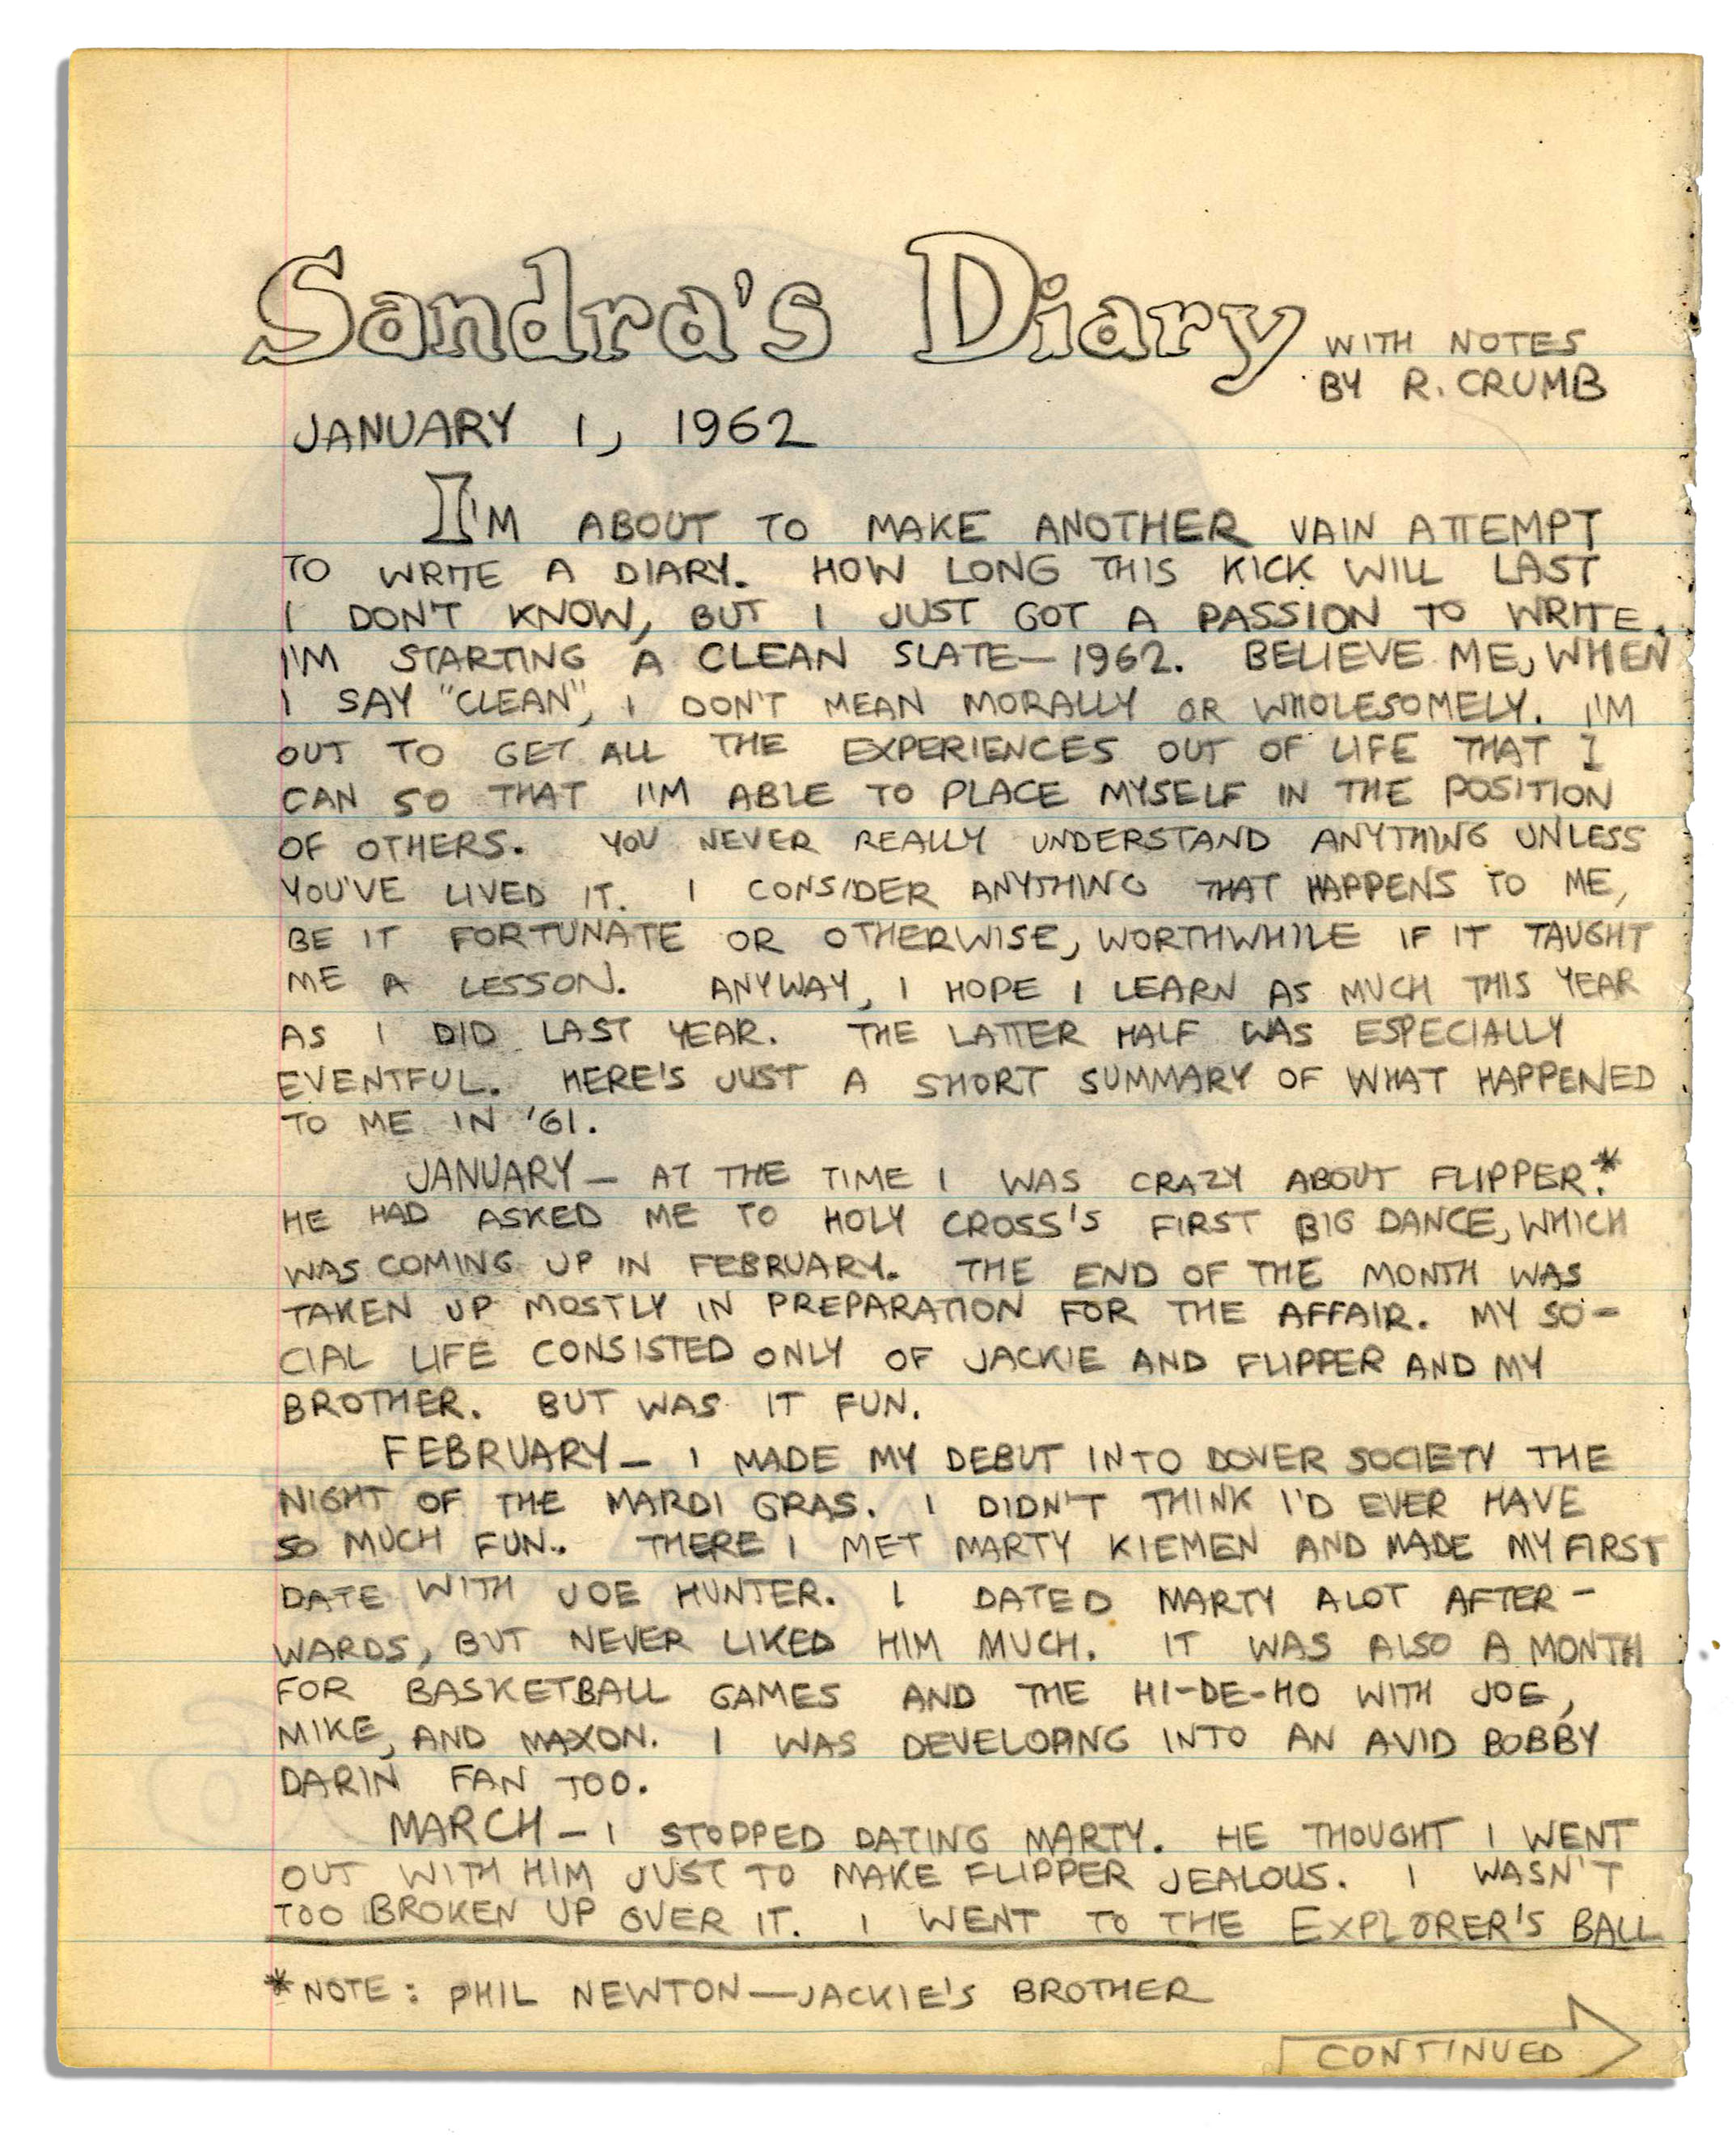 Sandra's Diary WITH NOTES
BY R. CRUMB
JANUARY 1, 1962
I'M ABOUT TO MAKE ANOTHER VAIN ATTEMPT
TO WRITE A DIARY. HOW LONG THIS KICK WILL LAST
I DON'T KNOW, BUT I JUST GOT A PASSION TO WRITE.
I'M STARTING A CLEAN SLATE—1962. BELIEVE ME, WHEN
I SAY "CLEAN", I DON'T MEAN MORALLY OR WHOLESOMELY. I'M
OUT TO GET ALL THE EXPERIENCES OUT OF LIFE THAT I
CAN SO THAT I'M ABLE TO PLACE MYSELF IN THE POSITION
OF OTHERS. YOU NEVER REALLY UNDERSTAND ANYTHING UNLESS
YOU'VE LIVED IT. I CONSIDER ANYTHING THAT HAPPENS TO ME,
BE IT FORTUNATE OR OTHERWISE, WORTHWHILE IF IT TAUGHT
ME A LESSON. ANYWAY, I HOPE I LEARN AS MUCH THIS YEAR
AS I DID LAST YEAR. THE LATTER HALF WAS ESPECIALLY
EVENTFUL. HERE'S JUST A SHORT SUMMARY OF WHAT HAPPENED
TO ME IN '61.
JANUARY — AT THE TIME I WAS CRAZY ABOUT FLIPPER.*
HE HAD ASKED ME TO HOLY CROSS'S FIRST BIG DANCE, WHICH
WAS COMING UP IN FEBRUARY. THE END OF THE MONTH WAS
TAKEN UP MOSTLY IN PREPARATION FOR THE AFFAIR. MY SO-
CIAL LIFE CONSISTED ONLY OF JACKIE AND FLIPPER AND MY
BROTHER. BUT WAS IT FUN.
FEBRUARY — I MADE MY DEBUT INTO DOVER SOCIETY THE
NIGHT OF THE MARDI GRAS. I DIDN'T THINK I'D EVER HAVE
SO MUCH FUN. THERE I MET MARTY KIEMEN AND MADE MY FIRST
DATE WITH JOE HUNTER. I DATED MARTY ALOT AFTER-
WARDS, BUT NEVER LIKED HIM MUCH. IT WAS ALSO A MONTH
FOR BASKETBALL GAMES AND THE HI-DE-HO WITH JOE,
MIKE, AND MAXON. I WAS DEVELOPING INTO AN AVID BOBBY
DARIN FAN TOO.
MARCH — I STOPPED DATING MARTY. HE THOUGHT I WENT
OUT WITH HIM JUST TO MAKE FLIPPER JEALOUS. I WASN'T
TOO BROKEN UP OVER IT. I WENT TO THE EXPLORER'S BALL
*NOTE: PHIL NEWTON—JACKIE'S BROTHER
CONTINUED